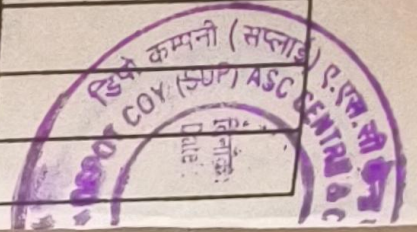 डिपो कम्पनी (सप्लाई) ए.एस.सी
DEPOT COY (SUP) ASC CENTRE & C
दिनांक:
Date: